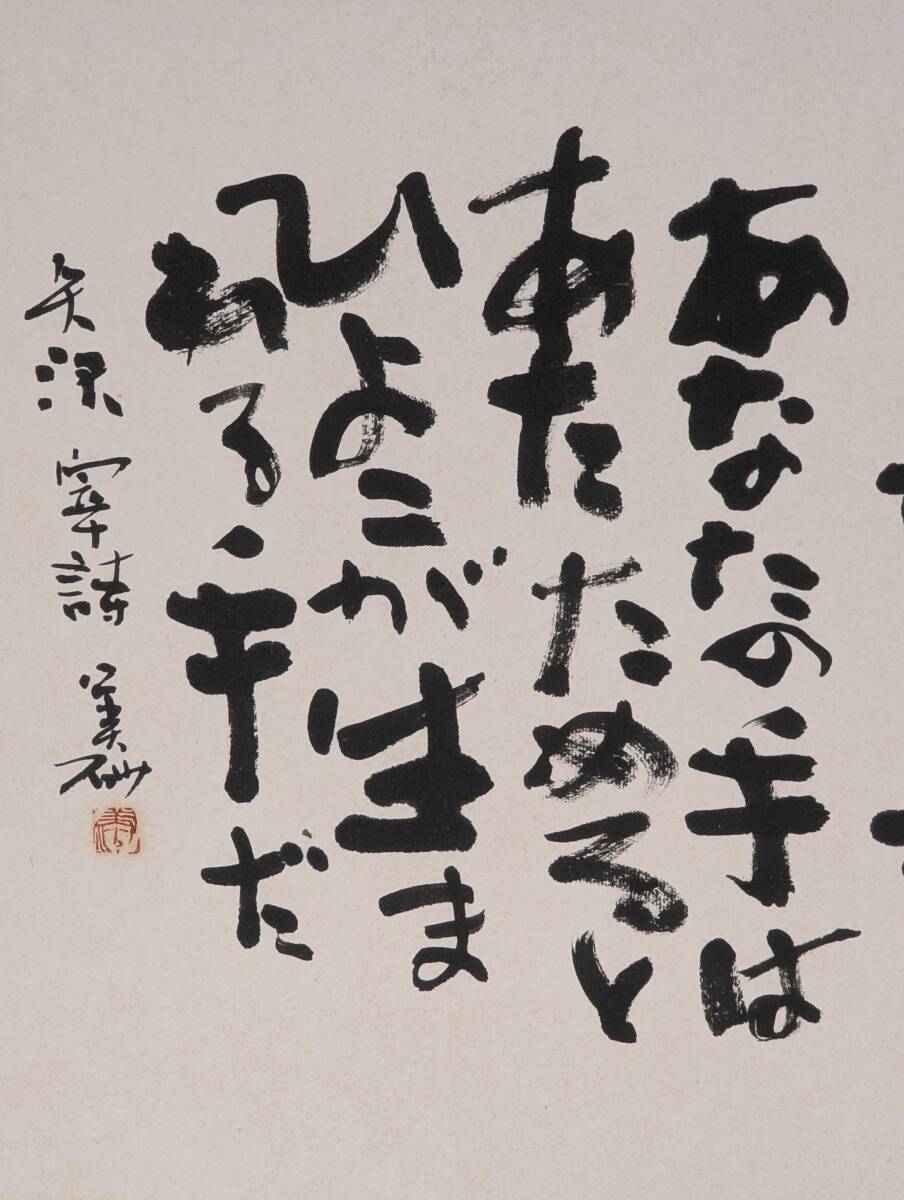 あなたの手は
あたためると
ひよこが生ま
れる手だ
矢沢宰詩